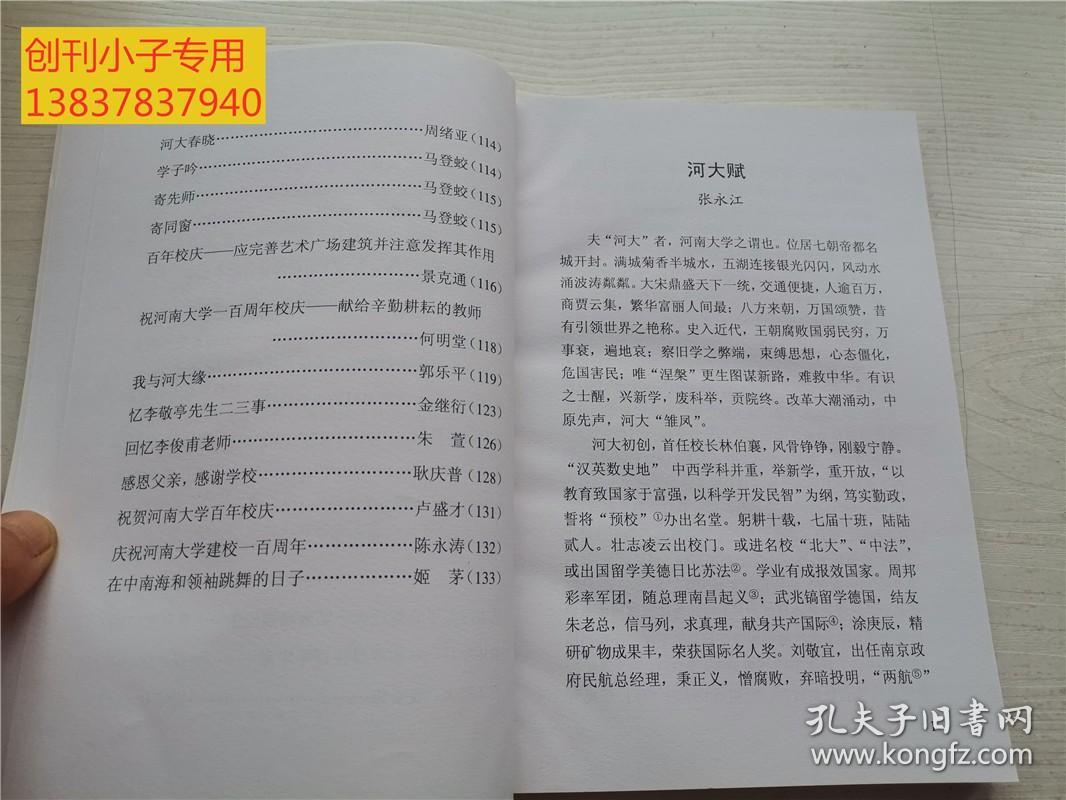 创刊小子专用
13837837940
河大春晓……………………………………周绪亚(114)
学子吟………………………………………马登蛟(114)
寄先师………………………………………马登蛟(115)
寄同窗………………………………………马登蛟(115)
百年校庆——应完善艺术广场建筑并注意发挥其作用
………………………景克通(116)
祝河南大学一百周年校庆——献给辛勤耕耘的教师
………………………何明堂(118)
我与河大缘…………………………………郭乐平(119)
忆李敬亭先生二三事………………………金继衍(123)
回忆李俊甫老师……………………………朱　萱(126)
感恩父亲，感谢学校………………………耿庆普(128)
祝贺河南大学百年校庆……………………卢盛才(131)
庆祝河南大学建校一百周年………………陈永涛(132)
在中南海和领袖跳舞的日子………………姬　茅(133)
河大赋
张永江
夫“河大”者，河南大学之谓也。位居七朝帝都名
城开封。满城菊香半城水，五湖连接银光闪闪，风动水
涌波涛粼粼。大宋鼎盛天下一统，交通便捷，人逾百万，
商贾云集，繁华富丽人间最；八方来朝，万国颂赞，昔
有引领世界之艳称。史入近代，王朝腐败国弱民穷，万
事衰，遍地哀；察旧学之弊端，束缚思想，心态僵化，
危国害民；唯“涅槃”更生图谋新路，难救中华。有识
之士醒，兴新学，废科举，贡院终。改革大潮涌动，中
原先声，河大“雏凤”。
河大初创，首任校长林伯襄，风骨铮铮，刚毅宁静。
“汉英数史地” 中西学科并重，举新学，重开放，“以
教育致国家于富强，以科学开发民智”为纲，笃实勤政，
誓将“预校”①办出名堂。躬耕十载，七届十班，陆陆
贰人。壮志凌云出校门。或进名校“北大”、“中法”，
或出国留学美德日比苏法②。学业有成报效国家。周邦
彩率军团，随总理南昌起义③；武兆镐留学德国，结友
朱老总，信马列，求真理，献身共产国际④；涂庚辰，精
研矿物成果丰，荣获国际名人奖。刘敬宜，出任南京政
府民航总经理，秉正义，憎腐败，弃暗投明，“两航⑤”
孔夫子旧书网
www.kongfz.com